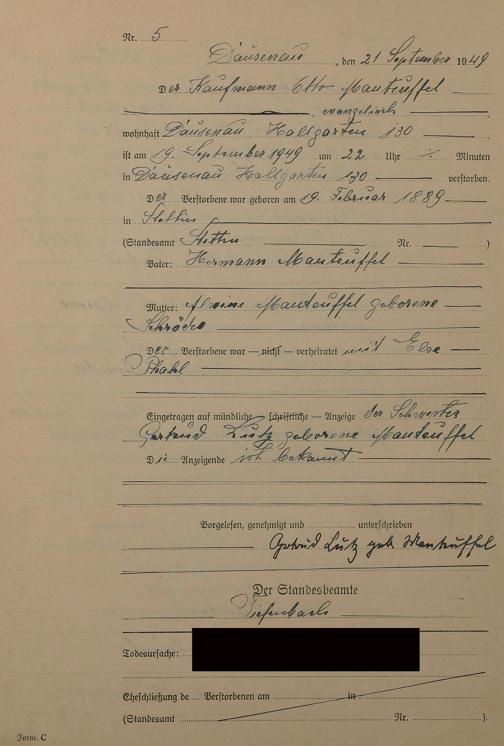 Nr. 5
Dausenau, den 21 September 1949
Der Kaufmann Otto Manteuffel
, evangelisch
wohnhaft Dausenau Hallgarten 130
ist am 19. September 1949 um 22 Uhr ÷ Minuten
in Dausenau Hallgarten 130 verstorben.
Der Verstorbene war geboren am 19. Februar 1889
in Stettin
(Standesamt Stettin Nr. )
Vater: Hermann Manteuffel
Mutter: Alwine Manteuffel geborene
Schröder
Der Verstorbene war — nicht — verheiratet mit Else
Eingetragen auf mündliche — schriftliche — Anzeige der Schwester
Gertrud Lutz geborene Manteuffel
Die Anzeigende ist bekannt
Vorgelesen, genehmigt und unterschrieben
Gertrud Lutz geb. Manteuffel
Der Standesbeamte
Todesursache:
Eheschließung de Verstorbenen am in
(Standesamt Nr. ).
Form. C